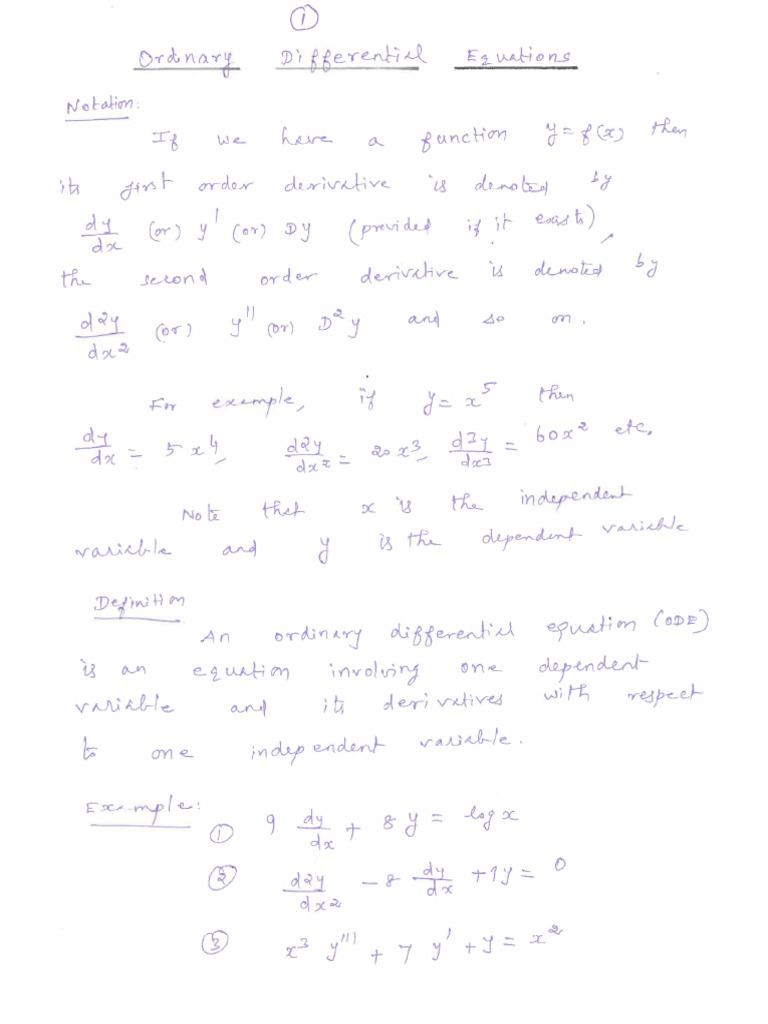 ①
Ordinary Differential Equations
Notation:
If we have a function y = f(x) then
its first order derivative is denoted by
dy/dx (or) y' (or) Dy (provided if it exists)
the second order derivative is denoted by
d2y/dx2 (or) y'' (or) D²y and so on.
For example, if y = x⁵ then
dy/dx = 5x4, d2y/dx2 = 20x3, d3y/dx3 = 60x² etc.
Note that x is the independent
variable and y is the dependent variable
Definition
An ordinary differential equation (ODE)
is an equation involving one dependent
variable and its derivatives with respect
to one independent variable.
Example:
① 9 dy/dx + 8y = log x
② d2y/dx2 - 8 dy/dx + 1y = 0
③ x³ y''' + 7 y' + y = x²